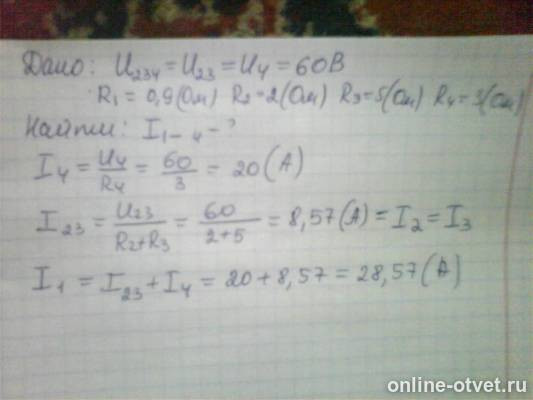 Дано: U₂₃₄ = U₂₃ = U₄ = 60В
R₁ = 0,9(Ом) R₂ = 2(Ом) R₃ = 5(Ом) R₄ = 3(Ом)
Найти: I₁₋₄ - ?
I₄ = U₄/R₄ = 60/3 = 20(А)
I₂₃ = U₂₃/(R₂+R₃) = 60/(2+5) = 8,57(А) = I₂ = I₃
I₁ = I₂₃ + I₄ = 20 + 8,57 = 28,57(А)
online-otvet.ru